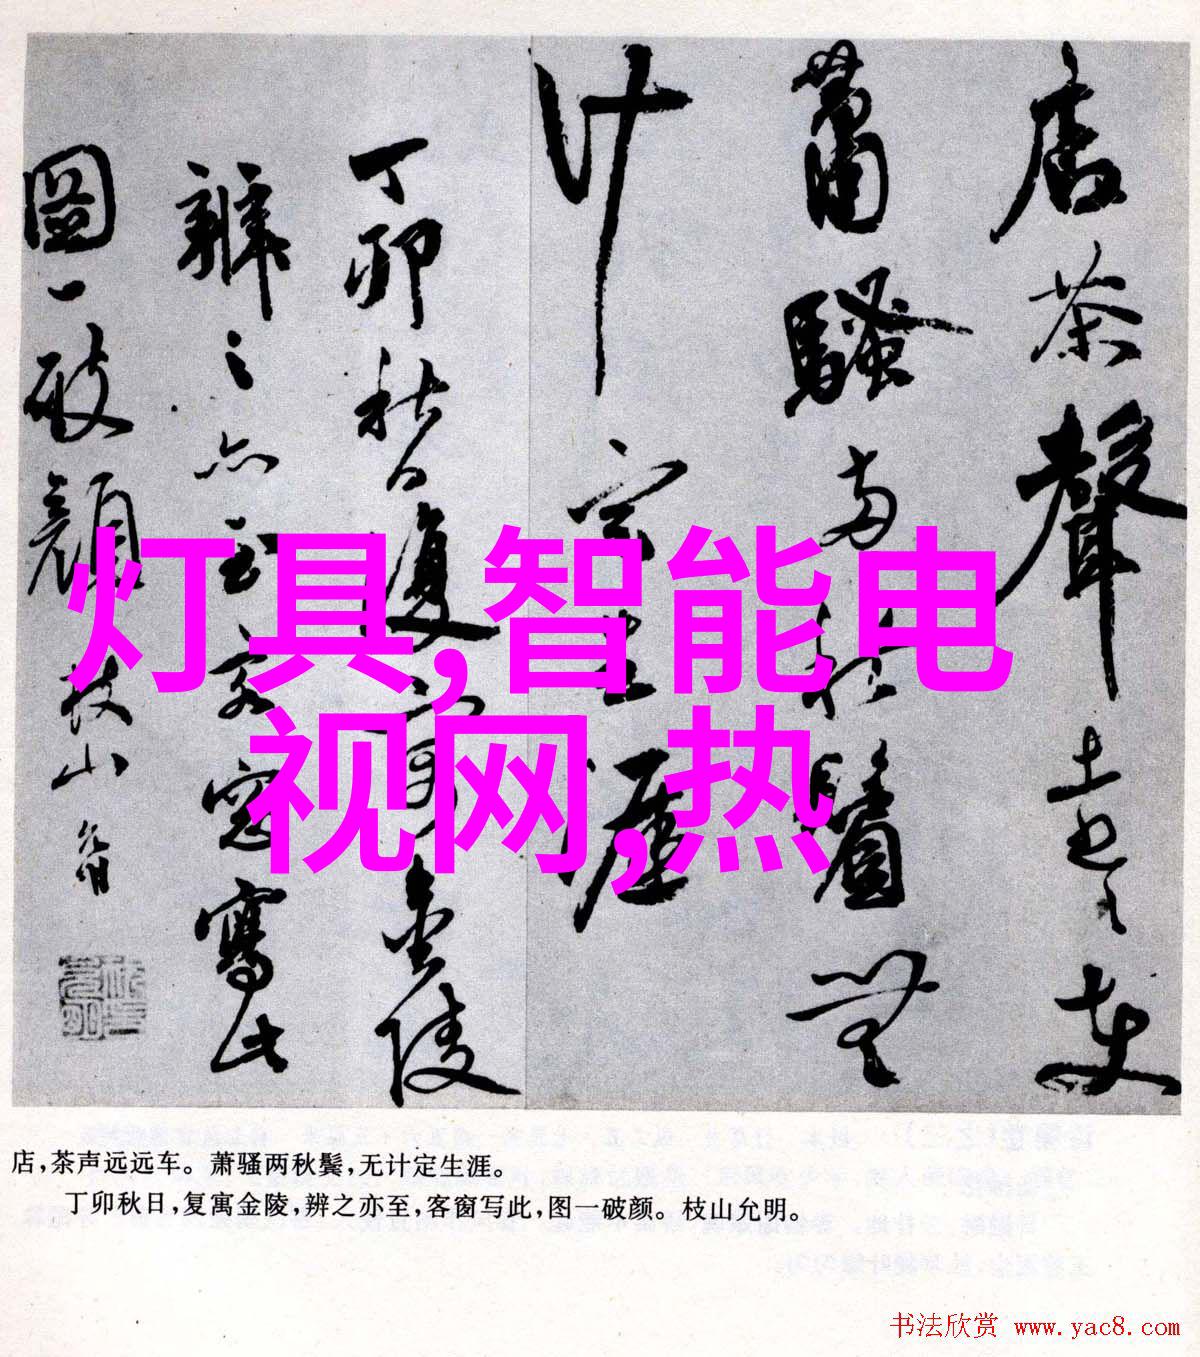 店茶聲遠遠車
蕭騷兩秋鬢無
計定生涯
丁卯秋日復寓金陵
辨之亦至客窓寫此
圖一破顔枝山允明
灯具,智能电
视网,热
店,茶声远远车。萧骚两秋鬓,无计定生涯。
丁卯秋日,复寓金陵,辨之亦至,客窗写此,图一破颜。枝山允明。
书法欣赏 www.yac8.com